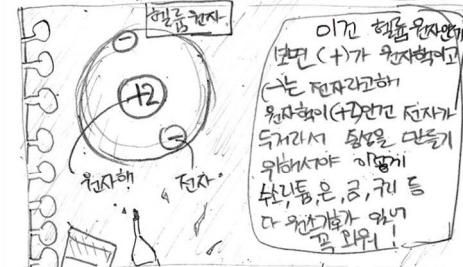 헬륨원자
+2
원자핵
전자
이건 헬륨원자인데
보면 (+)가 원자핵이고
(-)는 전자라고해
원자핵이(+2)인건 전자가
두개라서 중성을 만들기
위해서야 이렇게
수소,헬륨,은,금,구리 등
다 원소기호가 있어
꼭 외워!